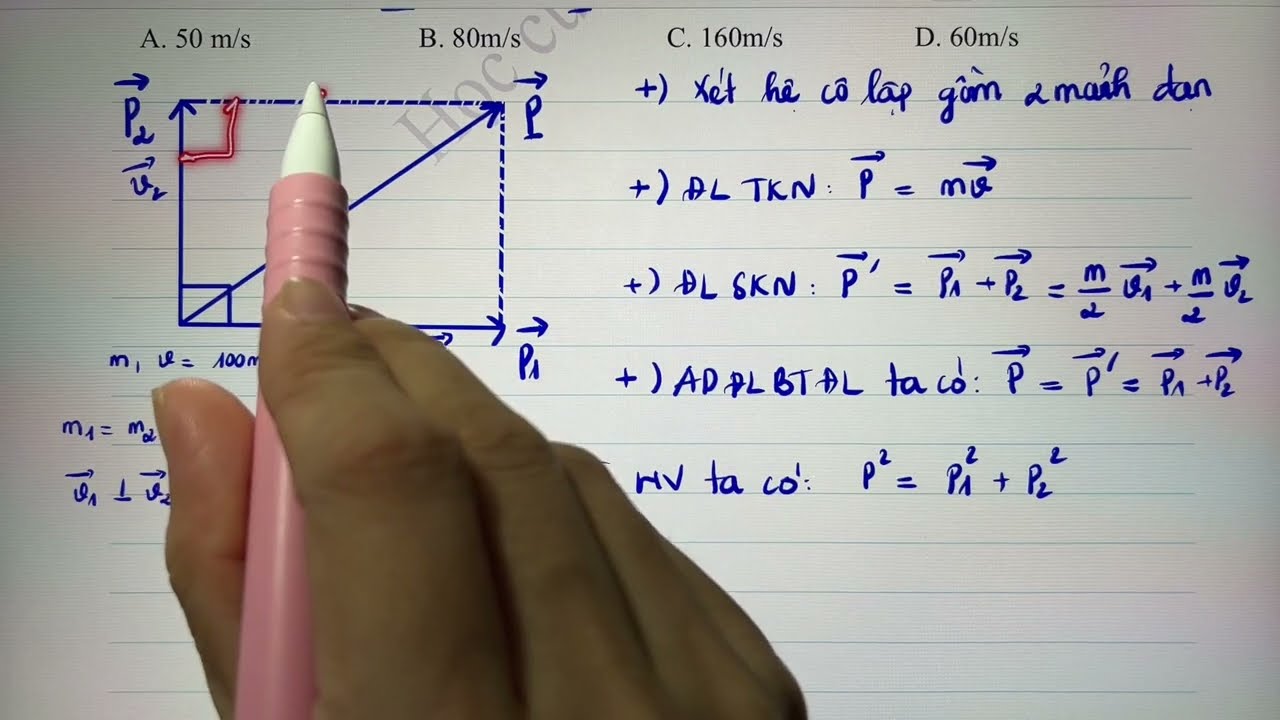 A. 50 m/s B. 80m/s C. 160m/s D. 60m/s
Học
P₂ P
v₂
P₁
m, v = 100m
m₁ = m₂
v₁ ⊥ v₂
+) Xét hệ cô lập gồm 2 mảnh đạn
+) ĐL TKN: P = mv
+) ĐL SKN: P' = P₁ + P₂ = m/2 v₁ + m/2 v₂
+) ADĐLBTĐL ta có: P = P' = P₁ + P₂
HV ta có: P² = P₁² + P₂²